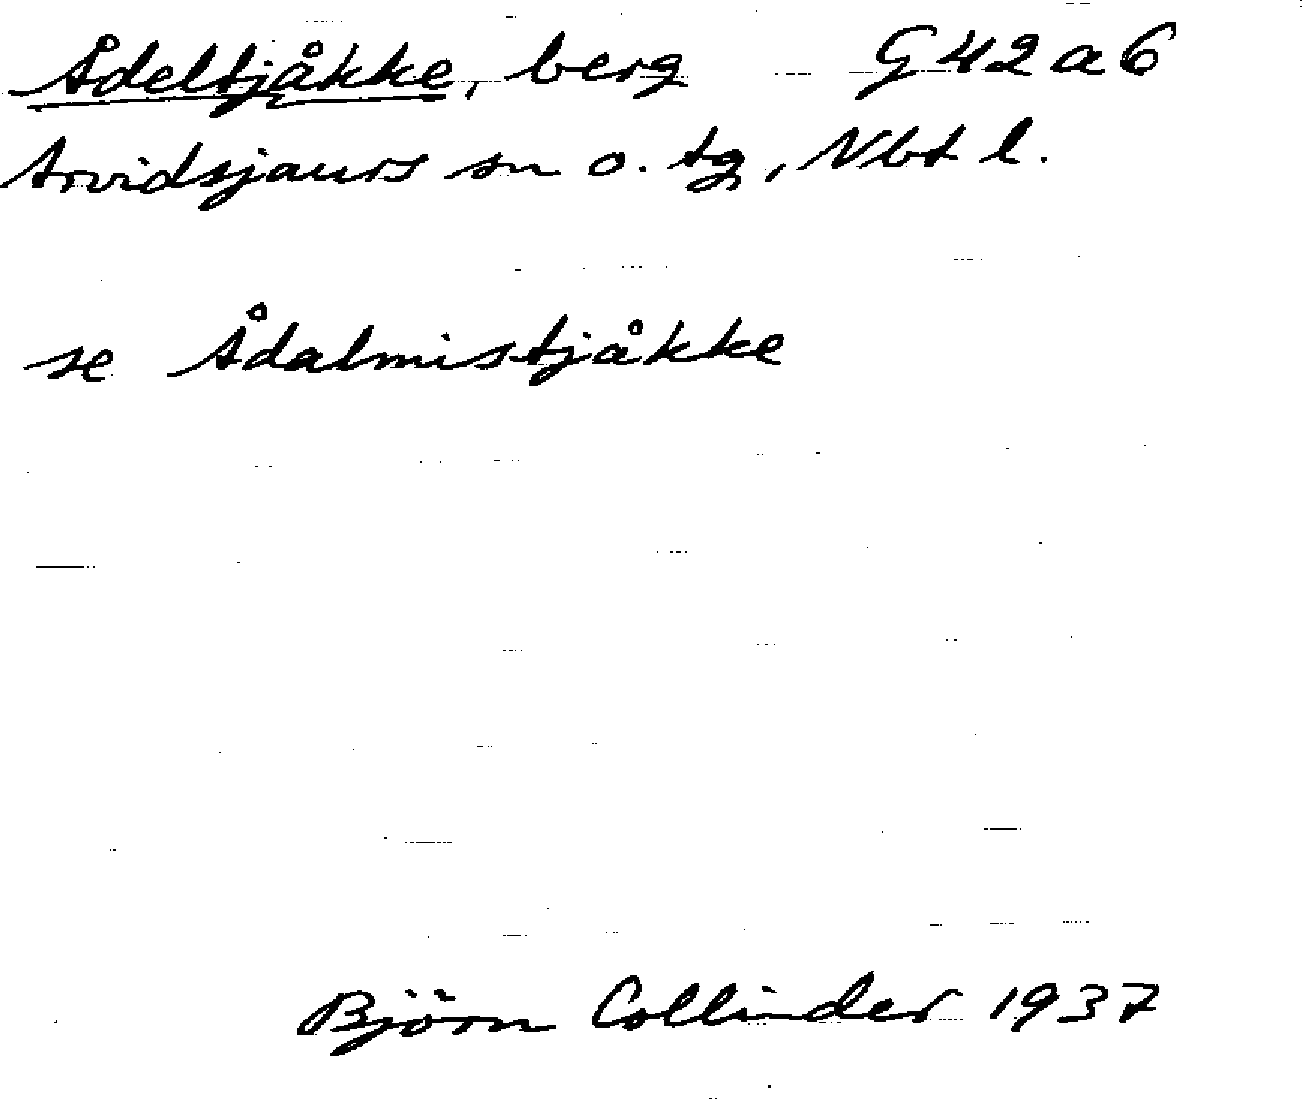 Ådeltjåkke, berg G 42 a 6
Arvidsjaurs sn o. tg, Nbt l.
se Ådalmistjåkke
Björn Collinder 1937